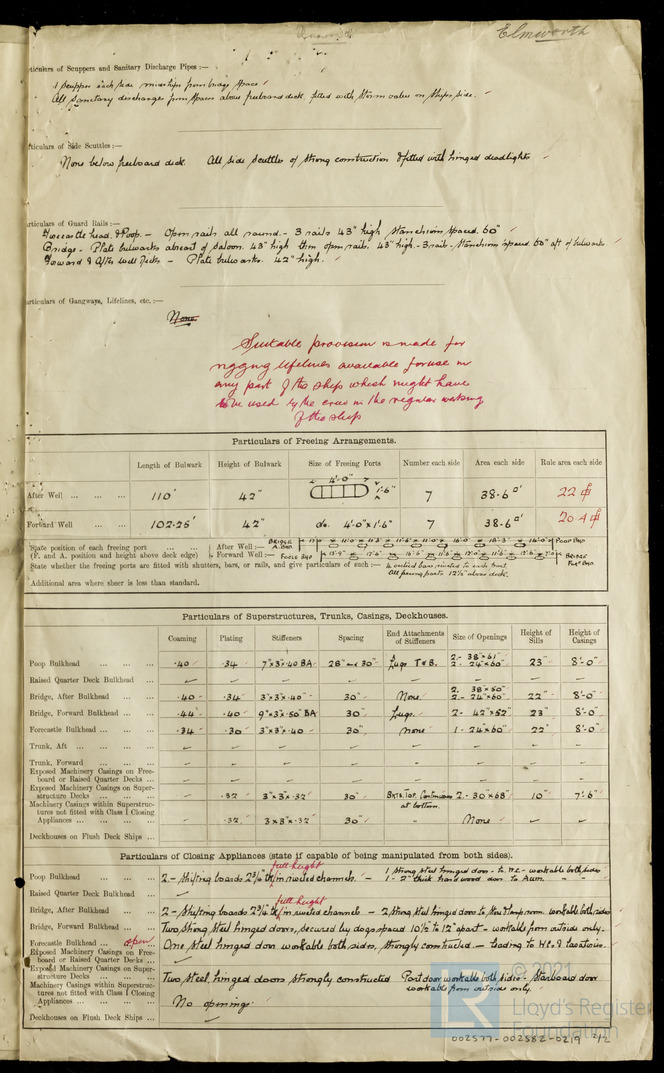 Elmworth
ticulars of Scuppers and Sanitary Discharge Pipes :—
1 scupper each side midships from bridge space
All sanitary discharges from spaces above freeboard deck fitted with storm valves on ships side.
ticulars of Side Scuttles :—
None below freeboard deck. All side scuttles of strong construction & fitted with hinged deadlights
articulars of Guard Rails :—
Forecastle head & Poop. — Open rails all round. - 3 rails 43" high stanchions spaced 60"
Bridge - Plate bulwarks abreast of saloon. 43" high then open rails. 43" high - 3 rails - stanchions spaced 60" aft of bulwarks
Forward & After Well Decks — Plate bulwarks. 42" high.
articulars of Gangways, Lifelines, etc. :—
None
Suitable provision is made for
rigging lifelines available for use in
any part of the ship which might have
to be used by the crew in the regular working
of the ship
Particulars of Freeing Arrangements.
Length of Bulwark Height of Bulwark Size of Freeing Ports Number each side Area each side Rule area each side
After Well ... ... ... 110' 42" 4'-0" 1'-6" 7 38.6 □' 22
Forward Well ... ... 102.25' 42" do. 4'-0" x 1'-6" 7 38.6 □' 20.4
State position of each freeing port ... ... After Well :— BRIDGE A. BHD POOP BHD
(F. and A. position and height above deck edge) Forward Well :— FOCSLE BHD BRIDGE
State whether the freeing ports are fitted with shutters, bars, or rails, and give particulars of such :—
All freeing ports 12½" above deck.
Additional area where sheer is less than standard.
Particulars of Superstructures, Trunks, Casings, Deckhouses.
Coaming Plating Stiffeners Spacing End Attachments of Stiffeners Size of Openings Height of Sills Height of Casings
Poop Bulkhead ... ... ... .40 .34 7"x3"x.40 BA 28" and 30" Lugs T & B. 2 - 38"x61" 2 - 24"x60" 23" 8'-0"
Raised Quarter Deck Bulkhead ...
Bridge, After Bulkhead ... ... .40 .34 3"x3"x.40" 30" None 2. 38"x50" 2 - 24"x60" 22" 8'-0"
Bridge, Forward Bulkhead ... ... .44 .40 9"x3"x.50" BA 30" Lugs. 2 - 42"x52" 23" 8'-0"
Forecastle Bulkhead ... ... ... .34 .30 3"x3"x.40 30" None 1 - 24"x60" 22" 8'-0"
Trunk, Aft ... ... ...
Trunk, Forward ... ... ...
Exposed Machinery Casings on Free-
board or Raised Quarter Decks ...
Exposed Machinery Casings on Super-
structure Decks ... ... ... .32 3"x3"x.32" 30" Bkts. Top. Continuous at bottom. 2 - 30"x68" 10" 7'-6"
Machinery Casings within Superstruc-
tures not fitted with Class I Closing
Appliances ... ... ... .32 3x3"x.32" 30" " None
Deckhouses on Flush Deck Ships ...
Particulars of Closing Appliances (state if capable of being manipulated from both sides).
full height
Poop Bulkhead ... ... ... 2 - shifting boards 2¾" th in riveted channels. — 1 strong steel hinged door - to W.C. - workable both sides
1 - 2" thick hard wood door to Accm. " "
Raised Quarter Deck Bulkhead ...
full height
Bridge, After Bulkhead ... ... 2 - shifting boards 2¾" th in riveted channels — 2 strong steel hinged doors to & lamp room. workable both sides
Bridge, Forward Bulkhead ... ... Two strong steel hinged doors, secured by dogs spaced 10½ to 12" apart - workable from outside only.
Forecastle Bulkhead ... open One steel hinged door workable both sides, strongly constructed — leading to W.C. & lavatories.
Exposed Machinery Casings on Free-
board or Raised Quarter Decks ...
Exposed Machinery Casings on Super-
structure Decks ... ... ... Two steel hinged doors strongly constructed Port door workable both sides - Starboard door
workable from outside only.
Machinery Casings within Superstruc-
tures not fitted with Class I Closing
Appliances ... ... ... No openings.
Deckhouses on Flush Deck Ships ...
© 2021
Lloyd's Register
Foundation
002577-002582-0219 2/2